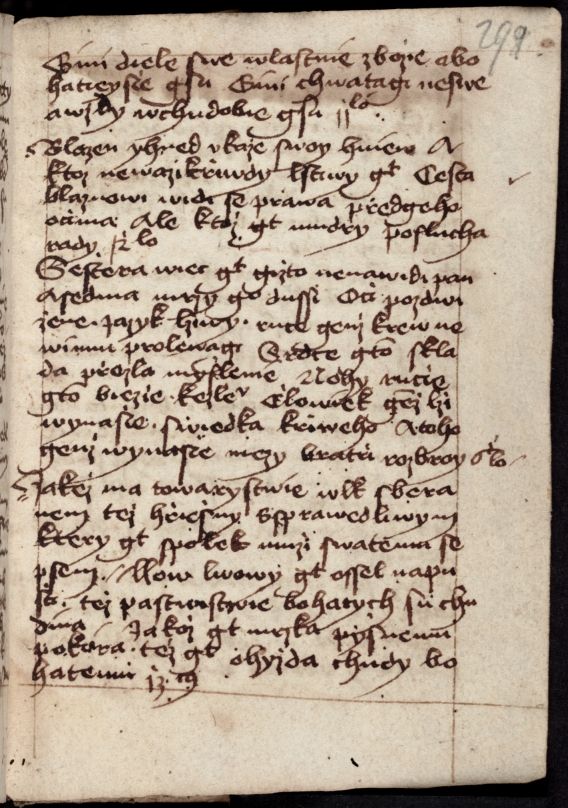 299
Gini diele swe wlastnie zbozie abo
hatieysie gsu Gini chwatagi neswe
awzdy wchudobie gsu 11 lo
Blazen yhned vkaze swoy hniew A
ktoz newazi krziwdy lstiwy gt Cesta
blaznowi widi se prawa przedgeho
oczima Ale ktoz gt mudry poslucha
rady lo
Sestera wiec gt gizto nenawidi pan
Asedma mrzy geo dussi Oczi pozdwi
zene. Jazyk lziwy. ruce genz krew ne
winnu prolewagi Srdce gto skla
da przezla myslenie Nohy rucie
gto biezie. kezle Clowiek genz lzi
wynasie. swiedka krziweho Atoho
genz wynasie mezy bratrzi rozbroy 6 lo
Jakez ma towarystwie wlk sbera
nem tez hrziesny Ssprawedliwym
ktery gt spolek muzi swatemu se
psem. Llow lwowy gt ossel napu
sti. tez pastwistwie bohatych su chu
dina Jakoz gt mrzka pysnemu
pokora. tez gt ohyzda chudy bo
hatemu 13. ch